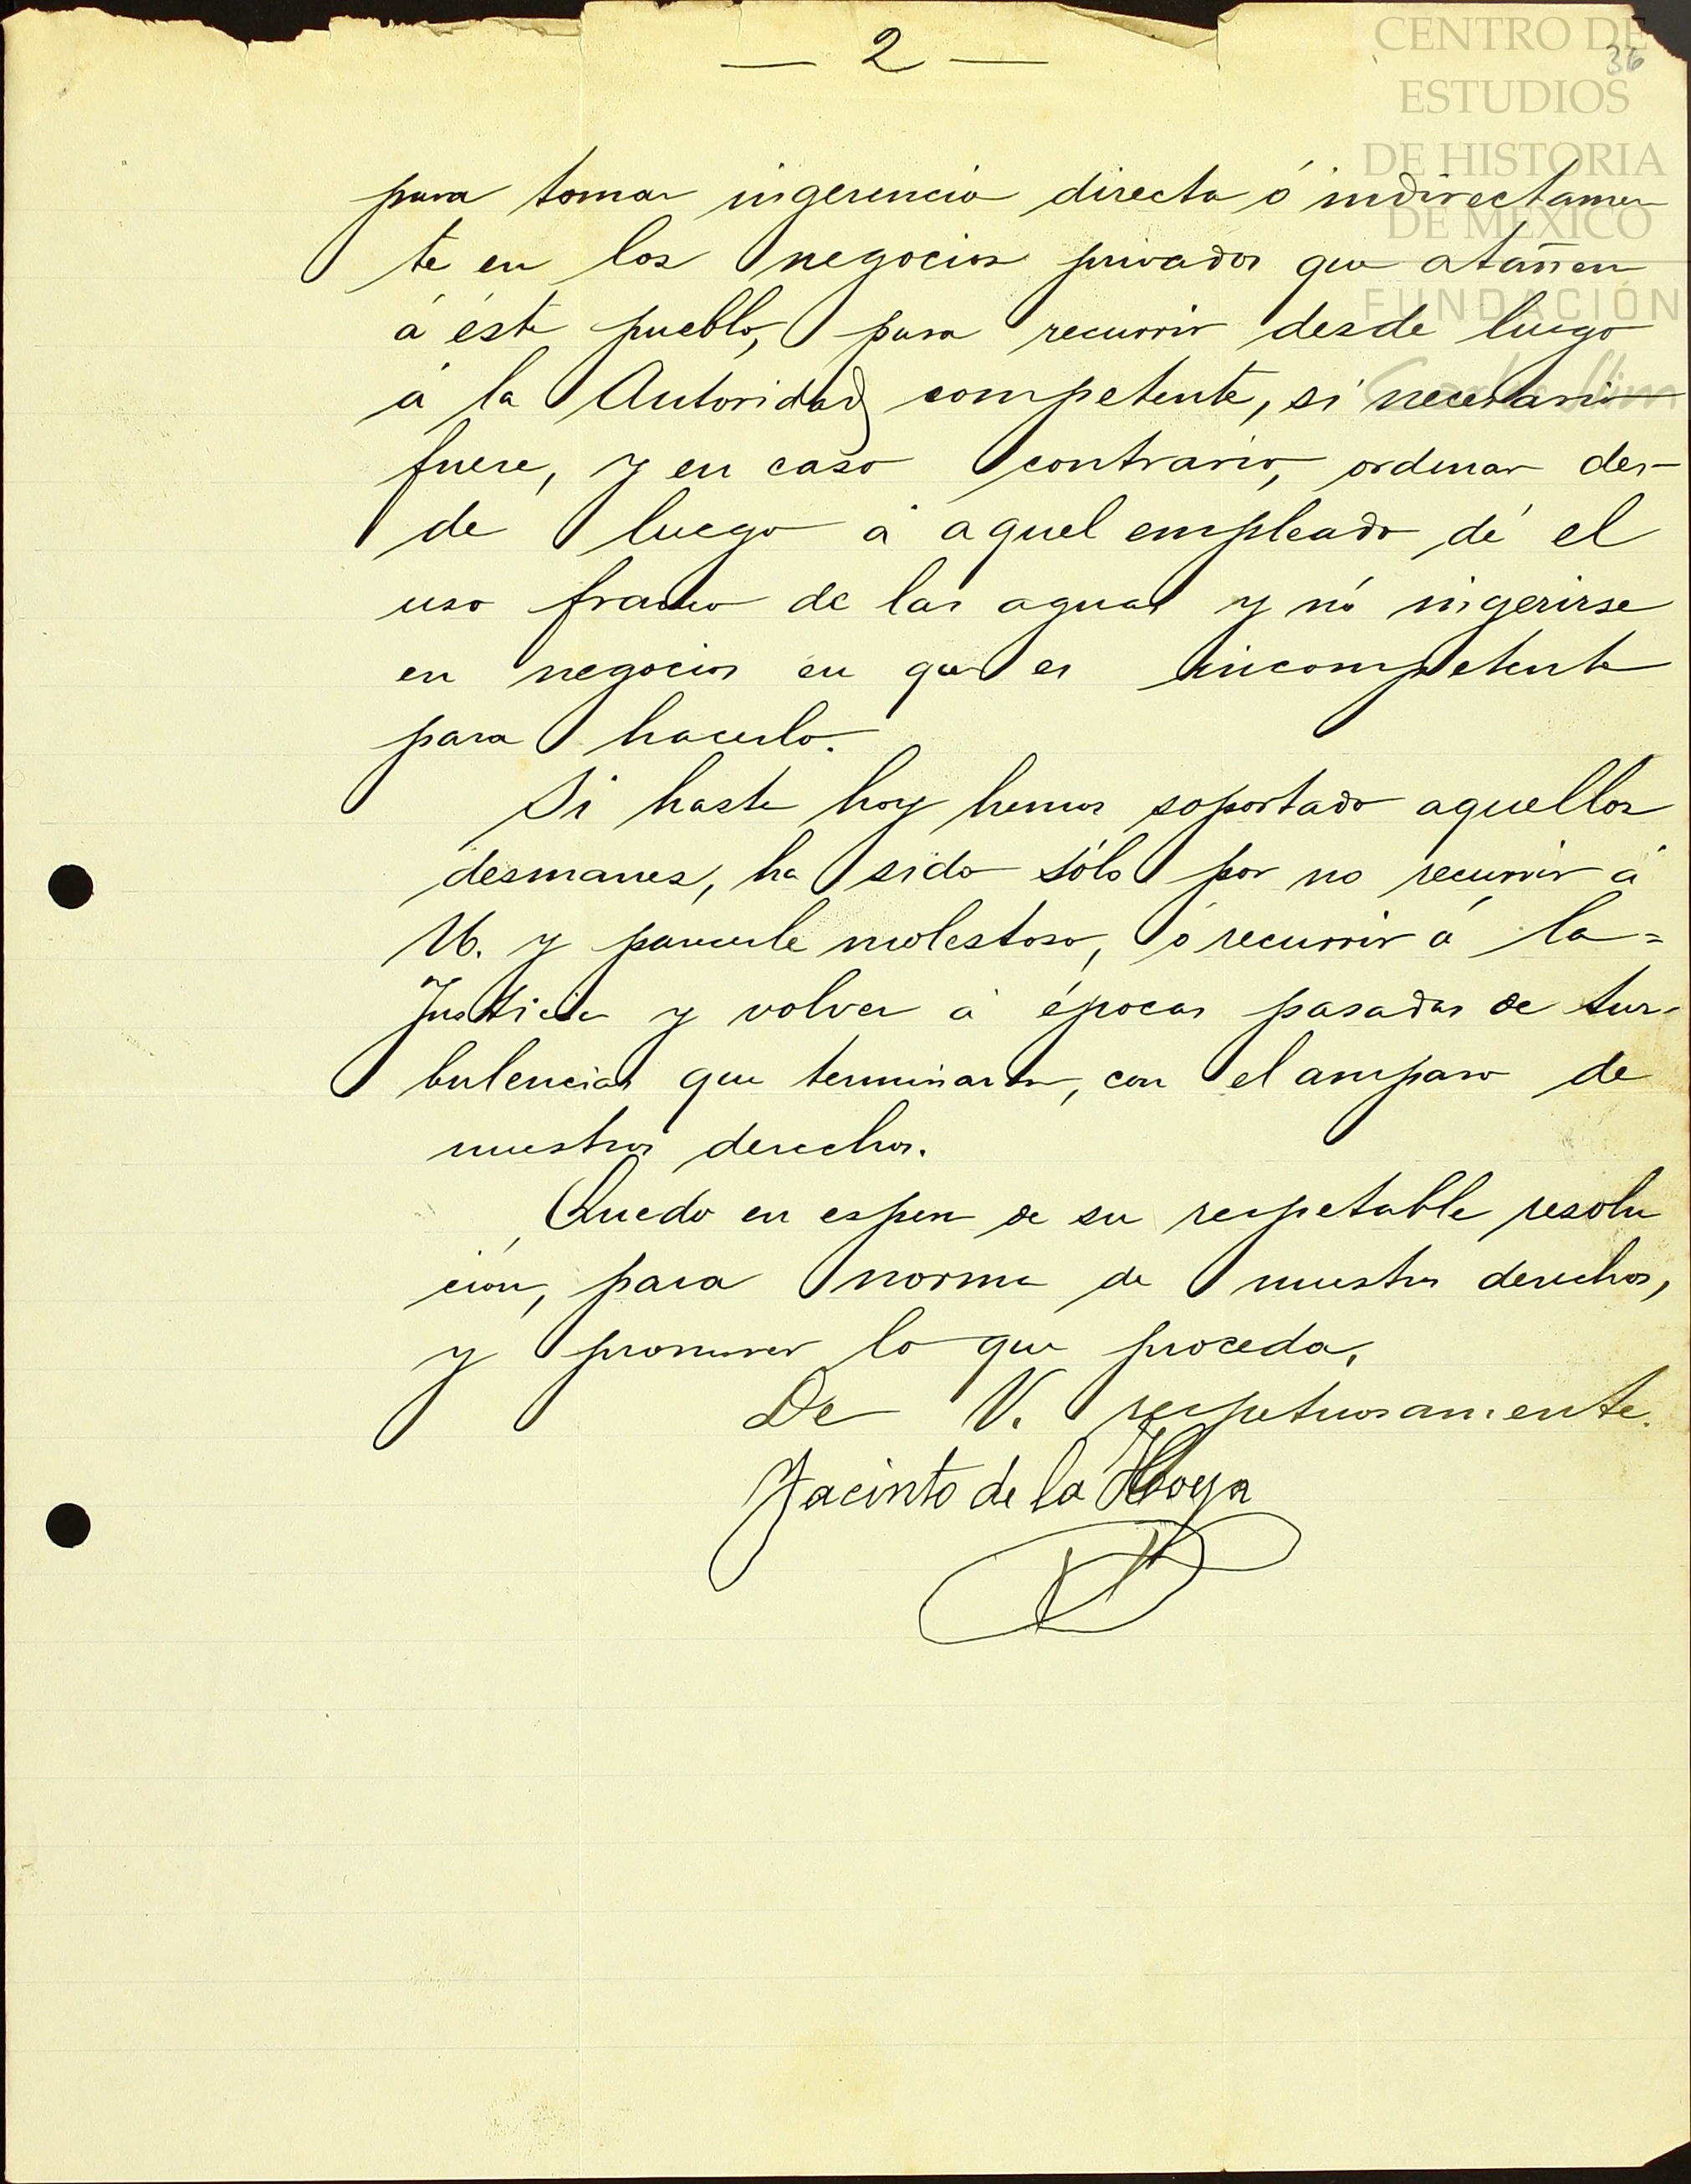 — 2 —
36
CENTRO DE
ESTUDIOS
DE HISTORIA
DE MÉXICO
FUNDACIÓN
Carlos Slim
para tomar ingerencia directa ó indirectamen
te en los negocios privados que atañen
á éste pueblo, para recurrir desde luego
á la Autoridad competente, si necesario
fuere, y en caso contrario, ordenar des-
de luego á aquel empleado dé el
uso franco de las aguas y nó ingerirse
en negocios en que es incompetente
para hacerlo.
Si hasta hoy hemos soportado aquellos
desmanes, ha sido sólo por no recurrir á
U. y parecerle molestoso, ó recurrir á la=
Justicia y volver á épocas pasadas de tur-
bulencias que terminaron, con el amparo de
nuestros derechos.
Quedo en espera de su respetable resolu
ción, para norma de nuestros derechos,
y promover lo que proceda,
De V. respetuosamente.
Jacinto de la Hoya